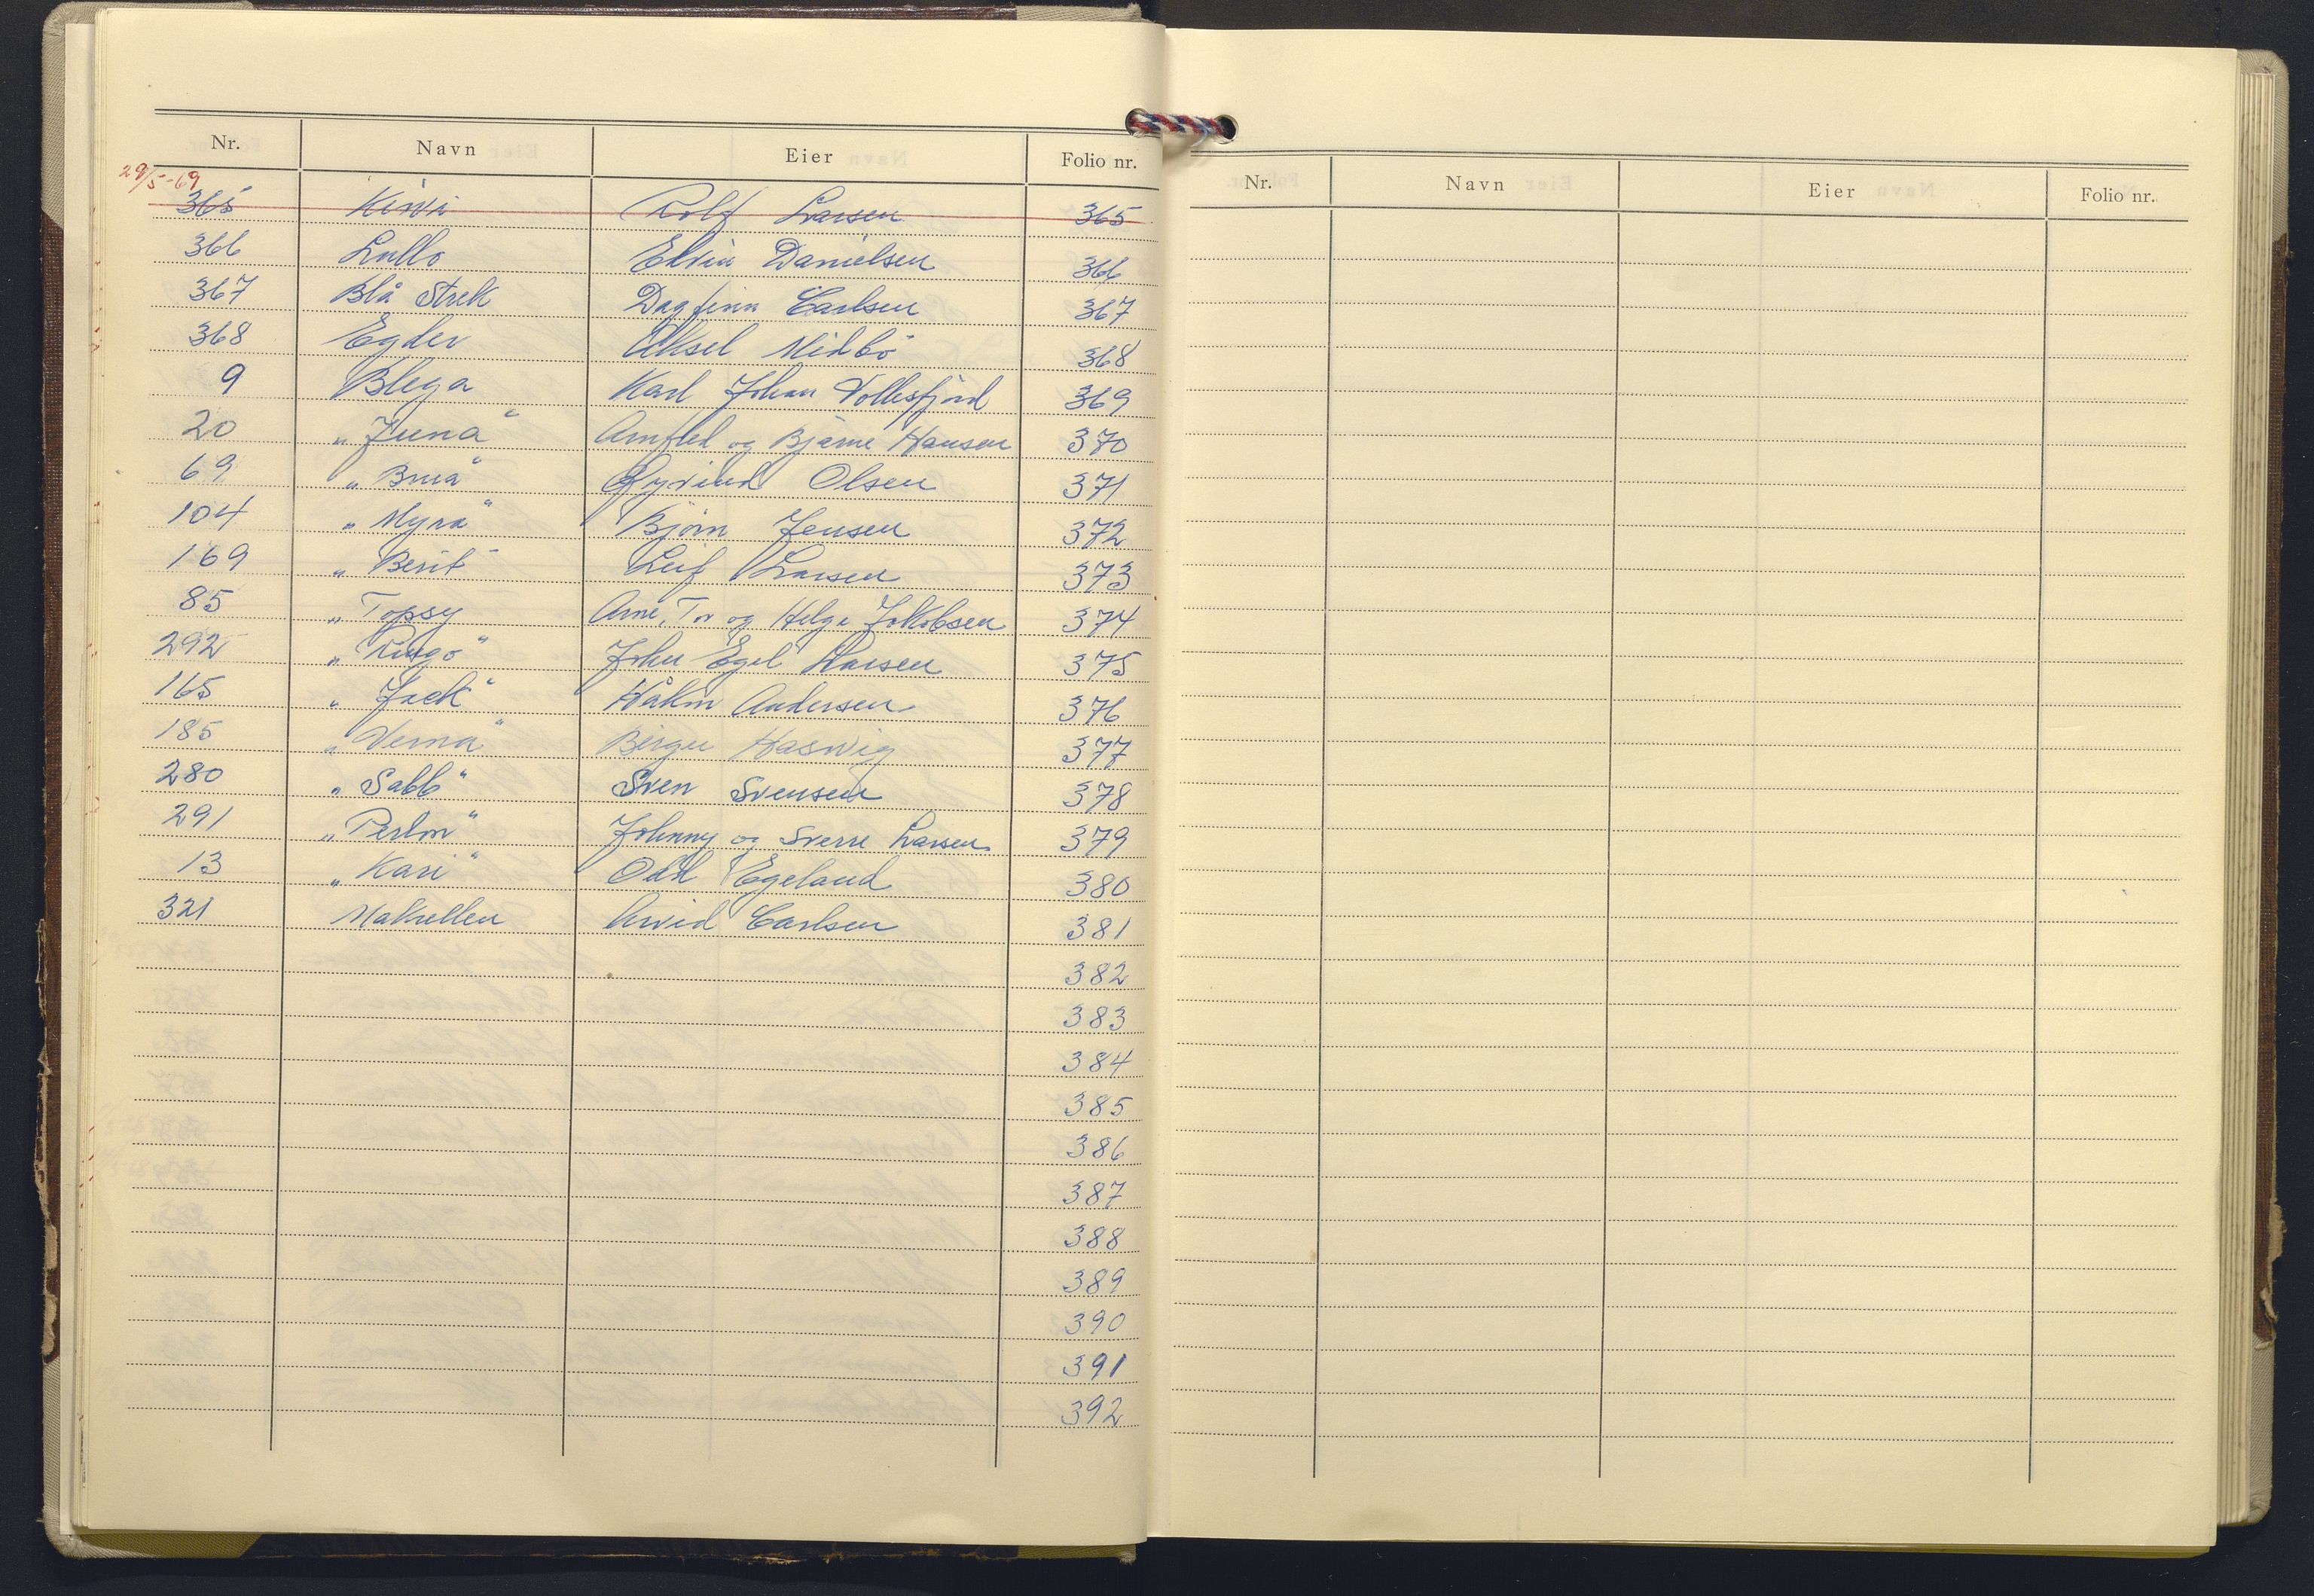 Nr. Navn Eier Folio nr.
29/5-69
365 Kiwi Rolf Larsen 365
366 Lullo Elvin Danielsen 366
367 Blå Strek Dagfinn Carlsen 367
368 Egder Aksel Midbö 368
9 Blega Karl Johan Vollesfjord 369
20 „Juna" Arnfled og Bjarne Hansen 370
69 „Brua" Øyvind Olsen 371
104 „Myra" Bjørn Jensen 372
169 „Berit" Leif Larsen 373
85 „Topsy Arne, Tor og Helge Jakobsen 374
292 „Ringo" John Egel Larsen 375
165 „Jack" Håkon Andersen 376
185 „Verna" Birger Haswig 377
280 „Sabb" Sven Svensen 378
291 „Perlon" Johnny og Sverre Larsen 379
13 „Kari" Odd Egeland 380
321 Makrellen Arvid Carlsen 381
382
383
384
385
386
387
388
389
390
391
392
Nr. Navn Eier Folio nr.